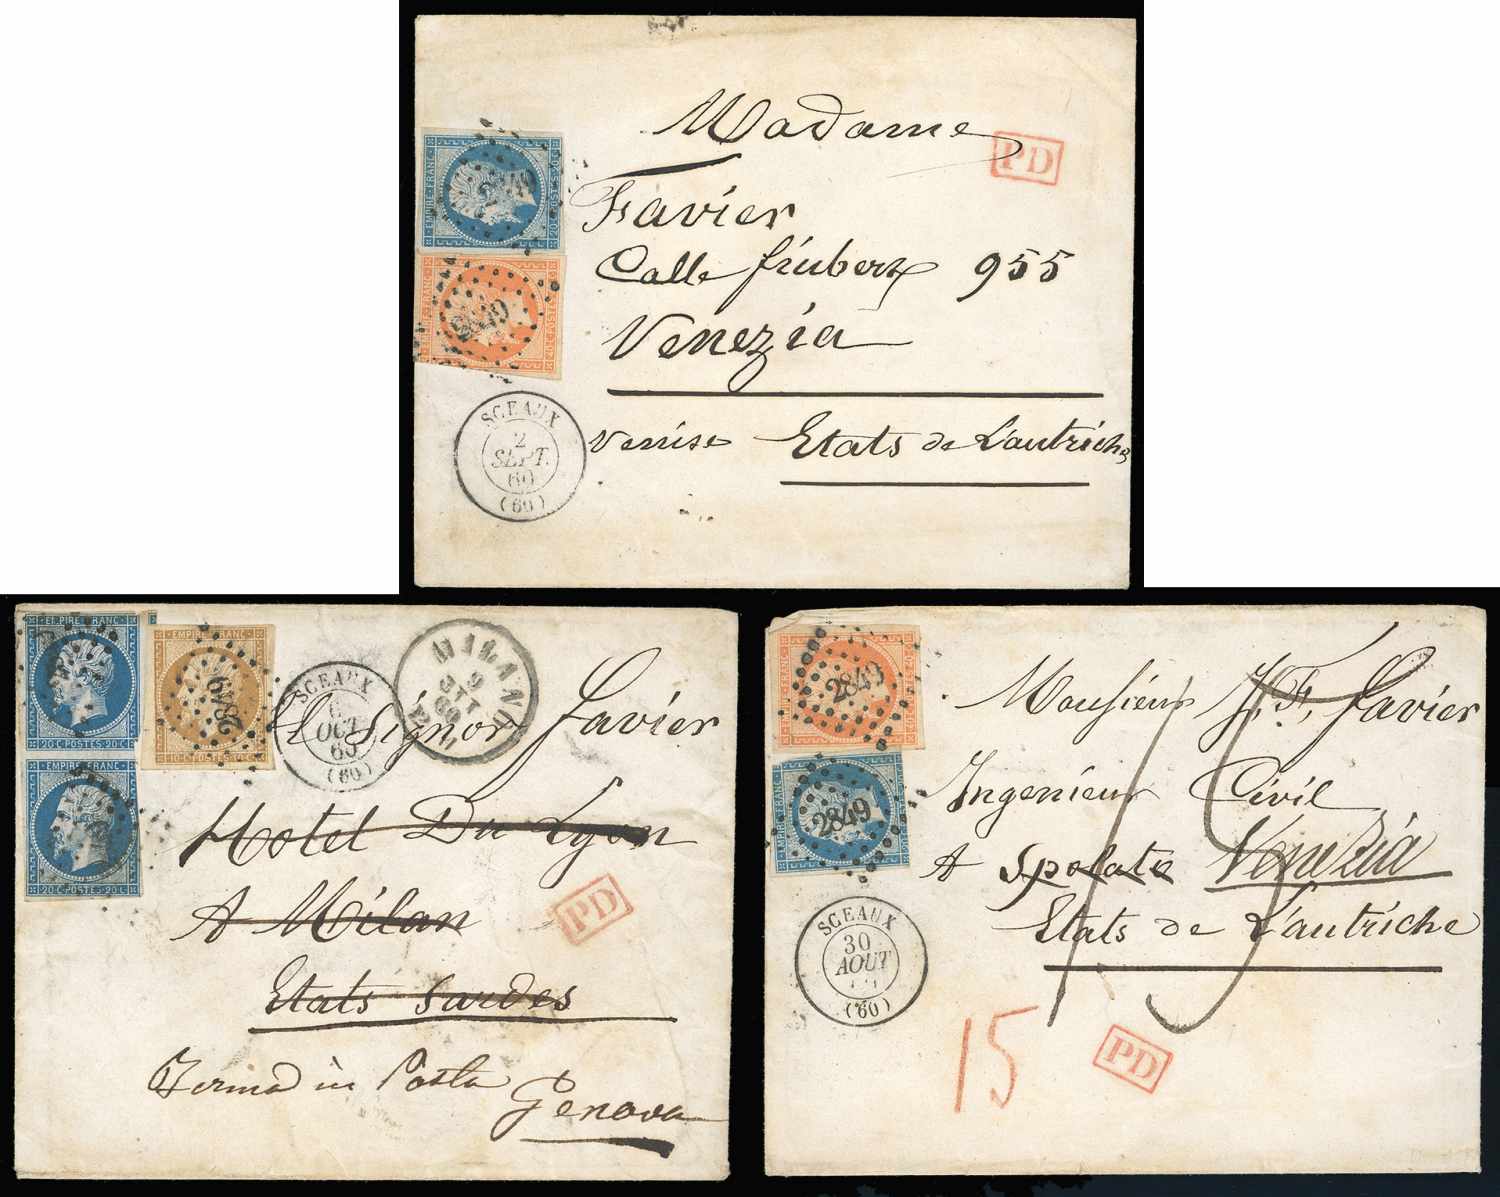 Madame
PD
Favier
Calle friuberx 955
Venezia
Venise Etats de L'autriche
EMPIRE FRANC
20 C POSTES 20 C
2849
EMPIRE FRANC
40 C POSTES
2849
SCEAUX
2
SEPT.
60
(60)
EMPIRE FRANC
20 C POSTES 20 C
EMPIRE FRANC
20 C POSTES 20 C
EMPIRE FRANC
10 C POSTES
2849
SCEAUX
OCT.
60
(60)
MILANO
9
60
Signor Favier
Hotel Du Lyon
A Milan
Etats Sardes
PD
Ferma in Posta
Genova
2849
EMPIRE FRANC
2849
SCEAUX
30
AOUT
(60)
Monsieur J. F. Favier
Ingenieur Civil
A Spolato Venezia
Etats de L'autriche
15
15
PD